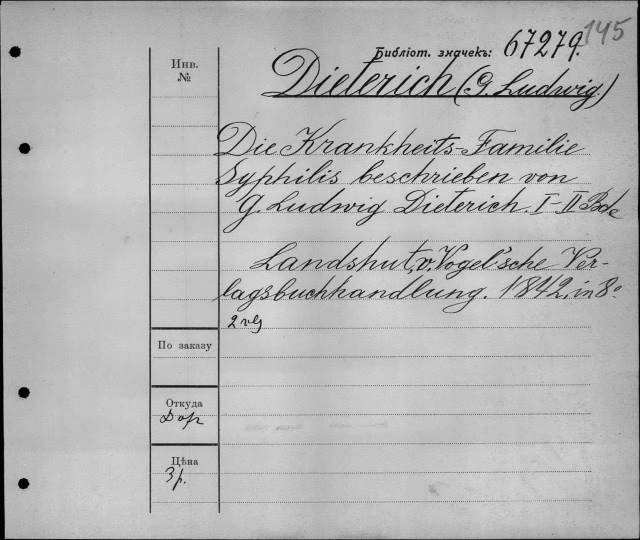 145
Библіот. значекъ: 67279.
Инв.
№
Dieterich (G. Ludwig)
Die Krankheits-Familie
Syphilis beschrieben von
G. Ludwig Dieterich. I-II Bde
Landshut, v. Vogel'sche Ver-
lagsbuchhandlung. 1842, in 8º
По заказу
Откуда
Дар
Цѣна
3 р.